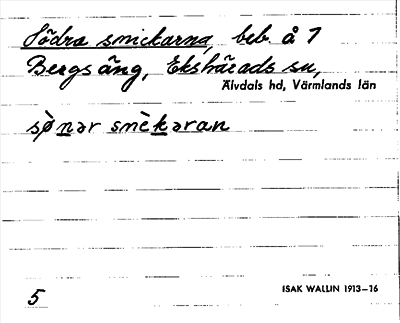 Södra smickarna, beb. å 1
Bergsäng, Ekshärads sn,
Älvdals hd, Värmlands län
sø̀nər smɛ̀kəran
5
ISAK WALLIN 1913–16